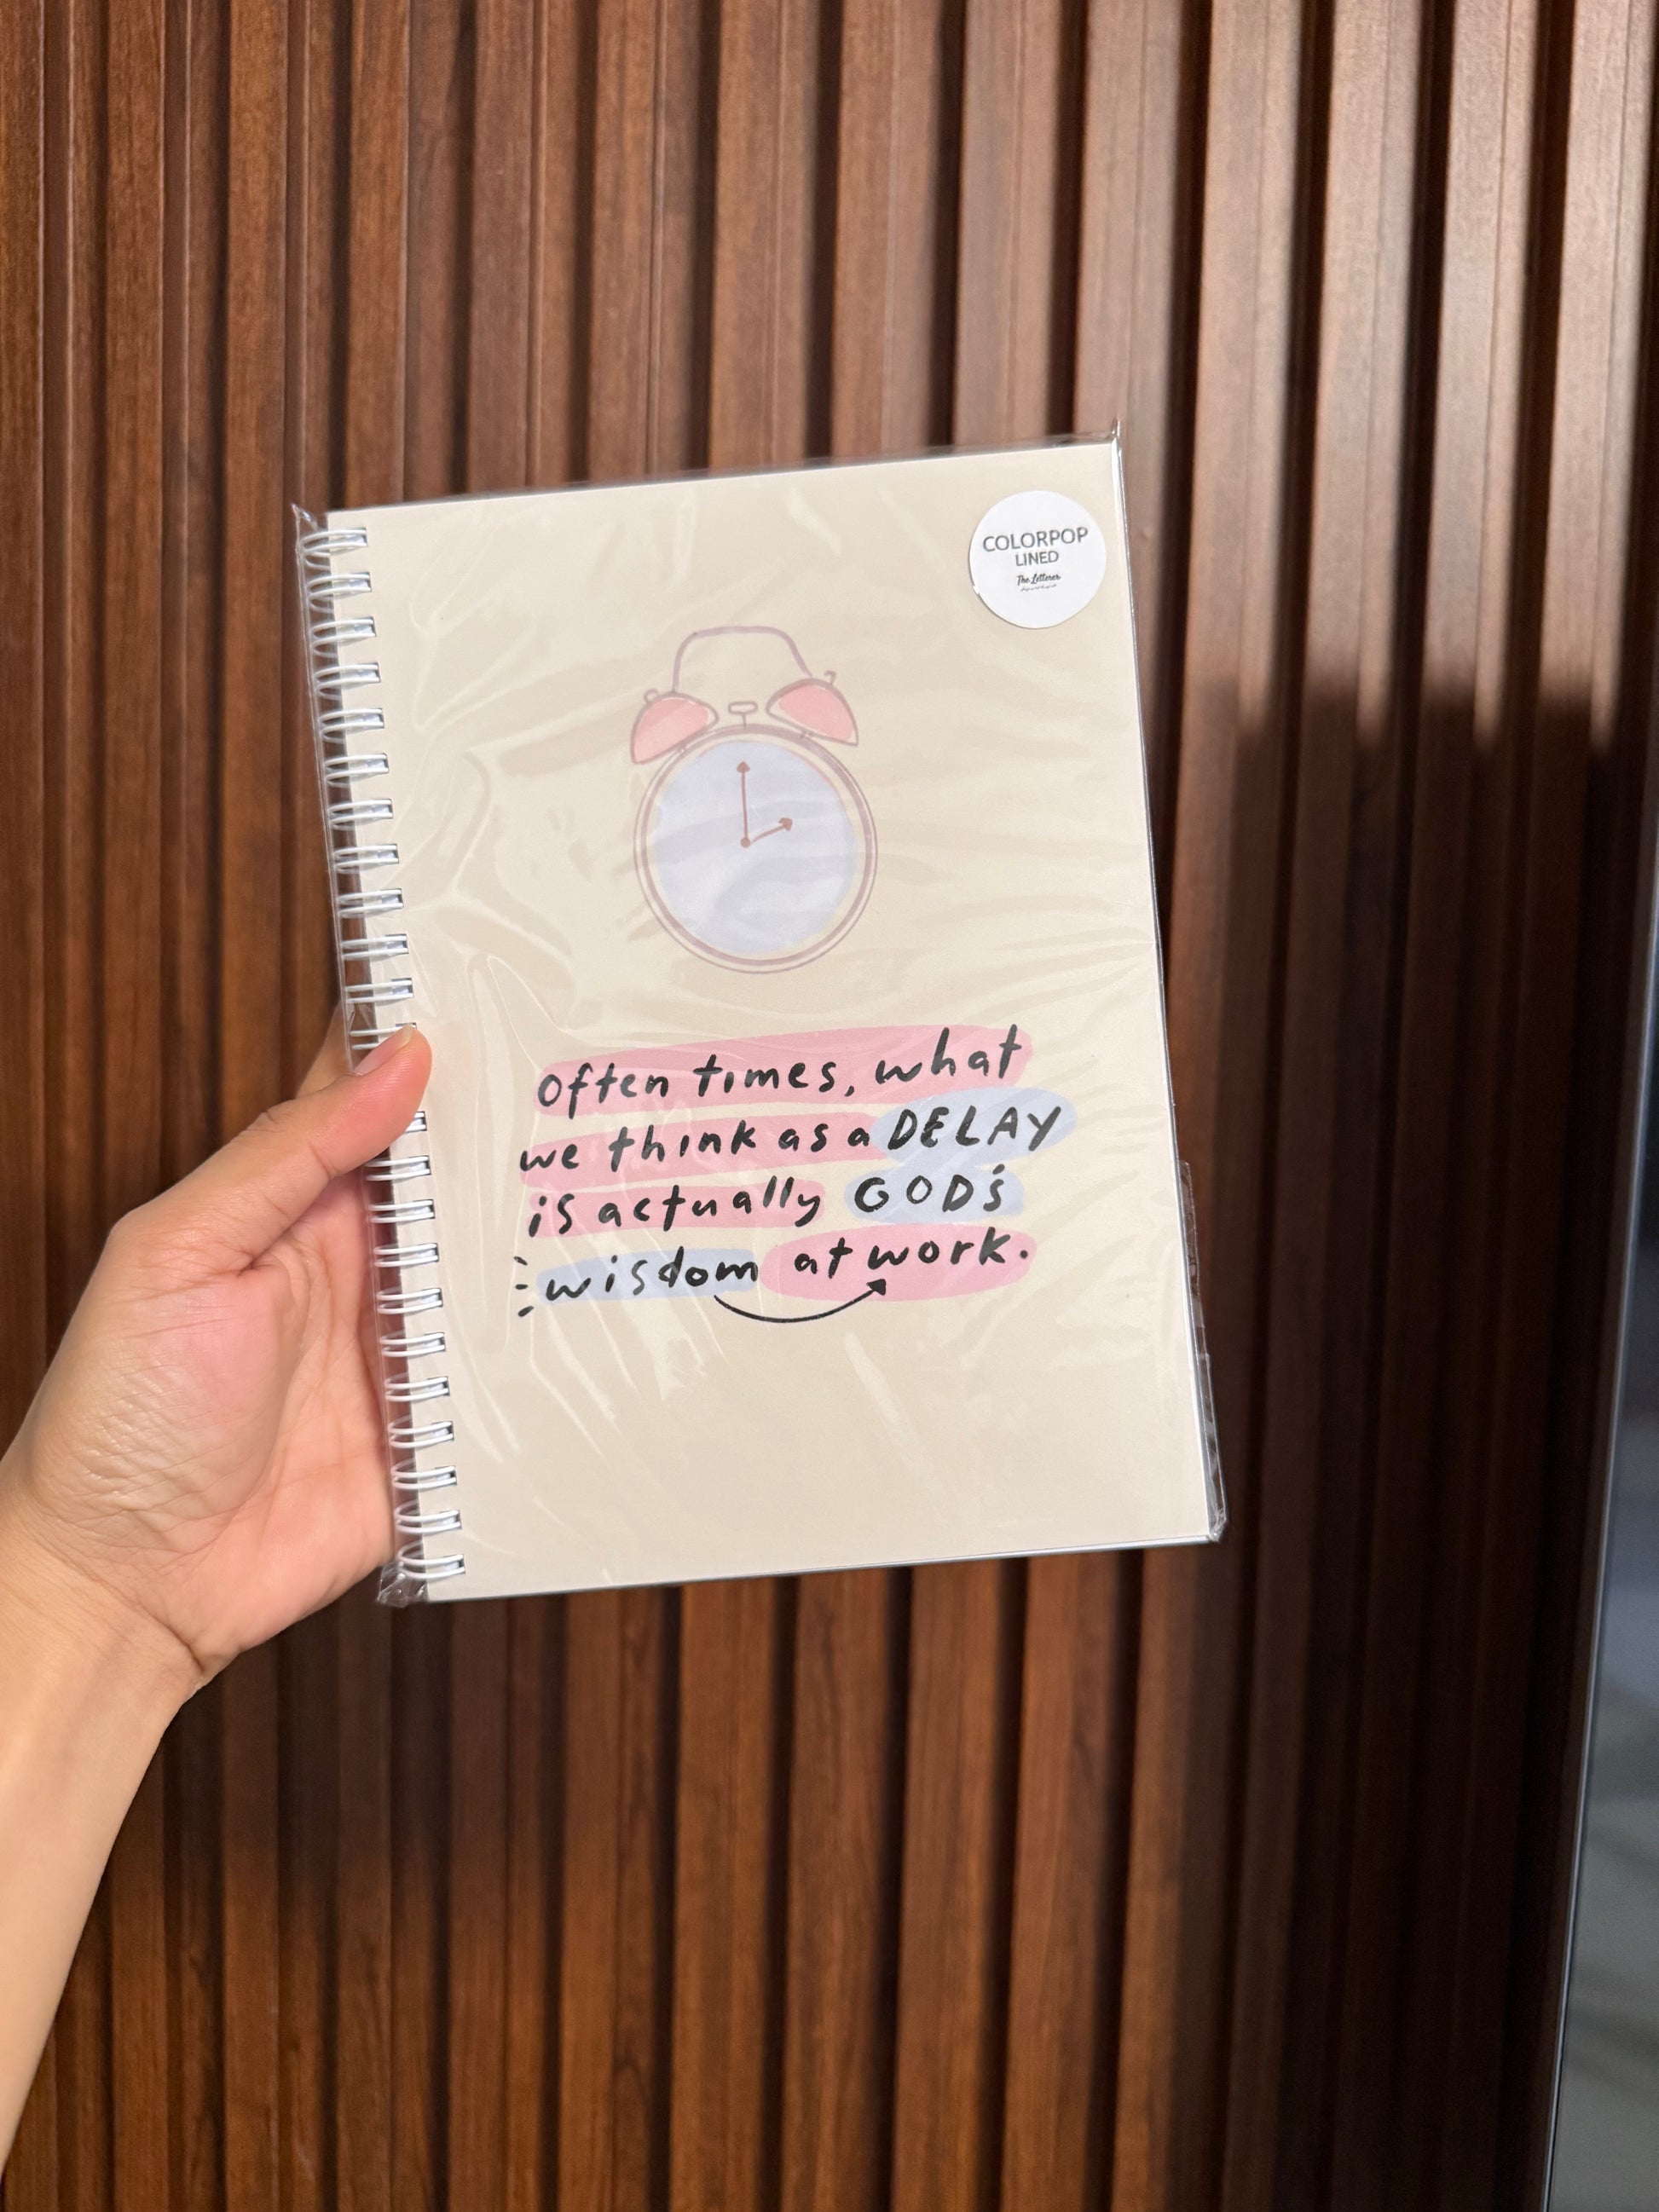 COLORPOP
LINED
The Letterer
often times, what
we think as a DELAY
is actually GOD's
wisdom at work.